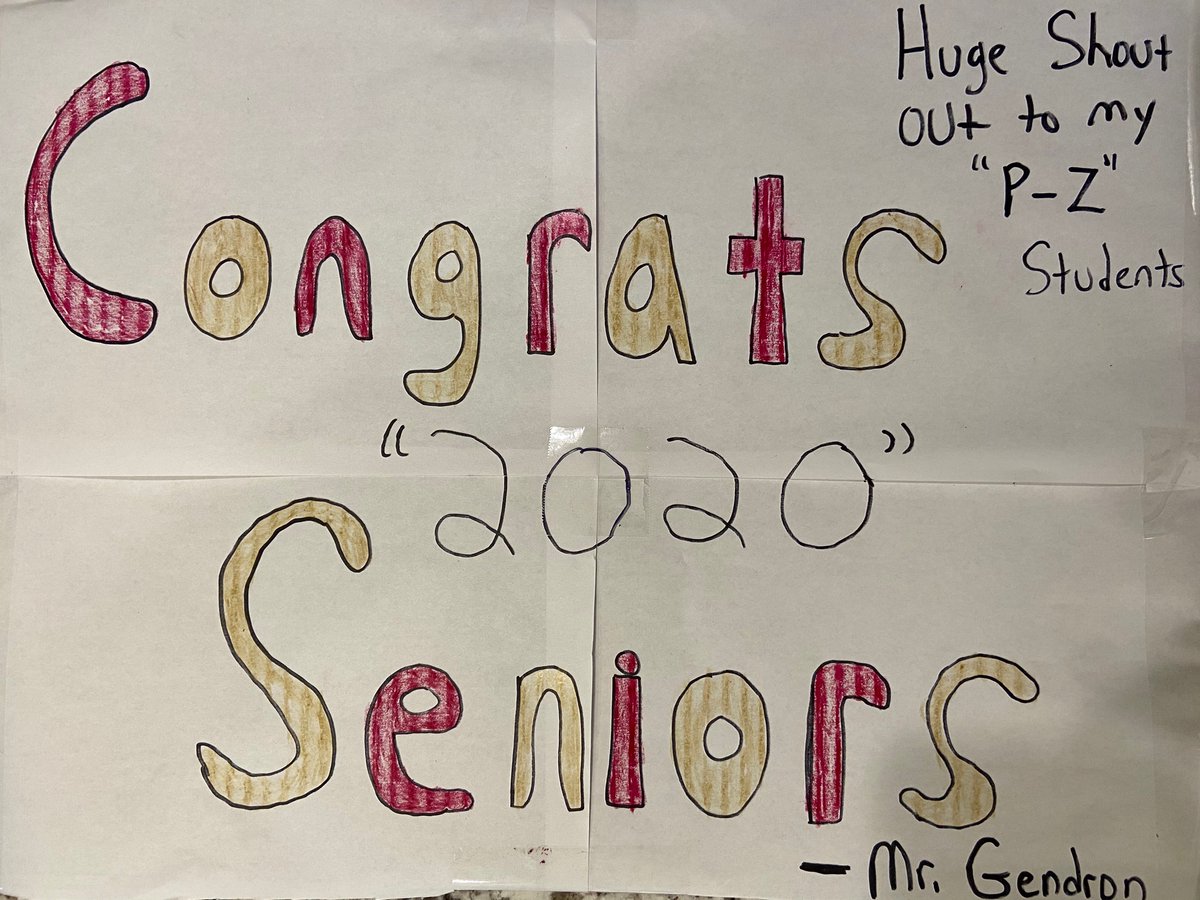 Huge Shout
out to my
"P-Z"
Students
Congrats
"2020"
Seniors
- Mr. Gendron